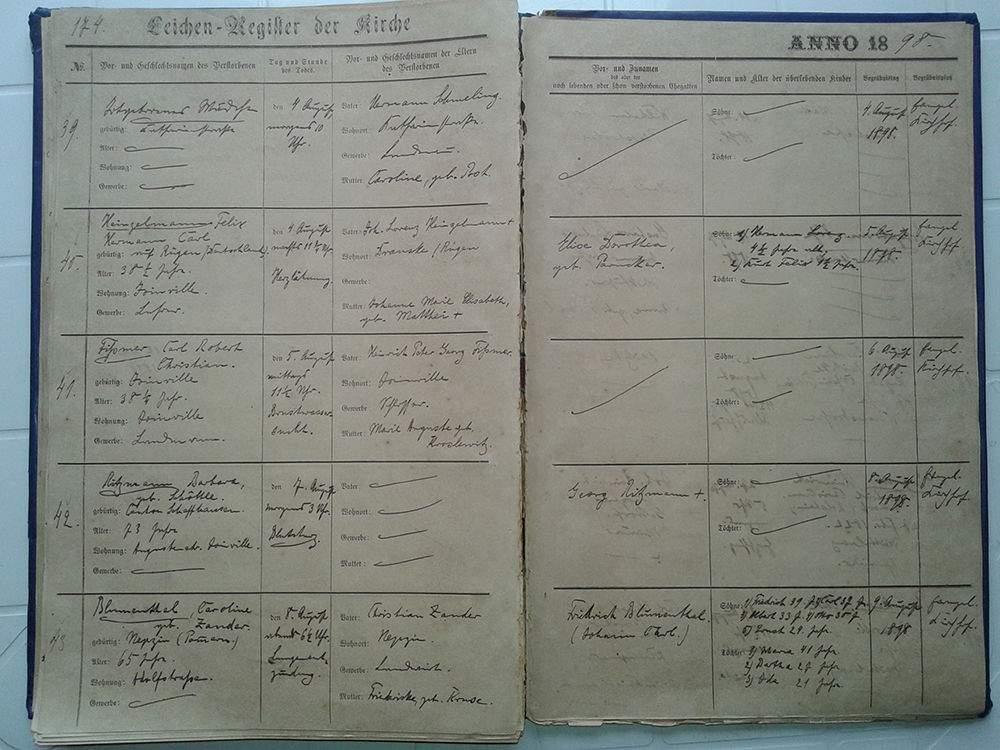 174. Leichen-Register der Kirche
ANNO 1898.
No. Vor- und Geschlechtsnamen des Verstorbenen
Tag und Stunde des Todes.
Vor- und Geschlechtsnamen der Eltern des Verstorbenen
Vor- und Zunamen
des oder der
noch lebenden oder schon verstorbenen Ehegatten
Namen und Alter der überlebenden Kinder
Begräbnißtag
Begräbnißplatz
39.
Totgeborenes Mädchen
gebürtig: Katharinenstraße
Alter:
Wohnung:
Gewerbe:
den 4 August
morgens 10
Uhr.
Vater: Hermann Schmeling.
Wohnort: Katharinenstraße.
Gewerbe: Landmann.
Mutter: Caroline, geb. Post.
Söhne:
Töchter:
4. August
1898.
Evangel.
Kirchhof.
40.
Heingelmann Felix
Hermann Carl
gebürtig: auf Rügen (Deutschland)
Alter: 38 ½ Jahr.
Wohnung: Joinville.
Gewerbe: Lehrer.
den 4 August
nachts 11½ Uhr.
Herzlähmung.
Vater: Joh. Lorenz Heingelmann +
Wohnort: / Rügen
Gewerbe:
Mutter: Johanne Marie Elisabeth,
geb. Matthei +
Elise Dorothea,
geb.
Söhne: 1) Hermann
4½ Jahr alt,
2) Kurt Felix ½ Jahr.
Töchter:
5. August
1898.
Evangel
Kirchhof
41.
Fißmer, Carl Robert
Christian.
gebürtig: Joinville
Alter: 38 ¼ Jahr.
Wohnung: Joinville
Gewerbe: Landmann.
den 5. August
mittags
11½ Uhr.
Brustwasser-
sucht.
Vater: Heinrich Peter Georg Fißmer.
Wohnort: Joinville
Gewerbe: Schlosser.
Mutter: Marie Auguste geb.
Söhne:
Töchter:
6. August
1898.
Evangel.
Kirchhof.
42.
Ritzmann Barbara,
geb. Schöttle.
gebürtig: Canton Schaffhausen
Alter: 73 Jahr
Wohnung: Augustenstr. Joinville.
Gewerbe:
den 7. August
morgens 3 Uhr.
Vater:
Wohnort:
Gewerbe:
Mutter:
Georg Ritzmann +.
Söhne:
Töchter:
8. August
1898.
Evangel
Kirchhof
43
Blumenthal, Caroline
geb. Zander.
gebürtig: Nepzin (Pommern)
Alter: 65 Jahr.
Wohnung: Adolfstraße.
Gewerbe:
den 8. August
abends 6½ Uhr.
Lungenent-
zündung.
Vater: Christian Zander
Wohnort: Nepzin.
Gewerbe: Landwirt.
Mutter: Friederike, geb. Kruse.
Friedrich Blumenthal.
(Johann Carl.)
Söhne: 1) Friedrich 39 J. 2) Carl 37 J.
3) Albert 33 J.
5) Ernst 29 Jahr.
Töchter: 1) Maria 41 Jahr
2) Bertha 27 Jahr
3) Ida 21 Jahr.
9. August
1898
Evangel.
Kirchhof.